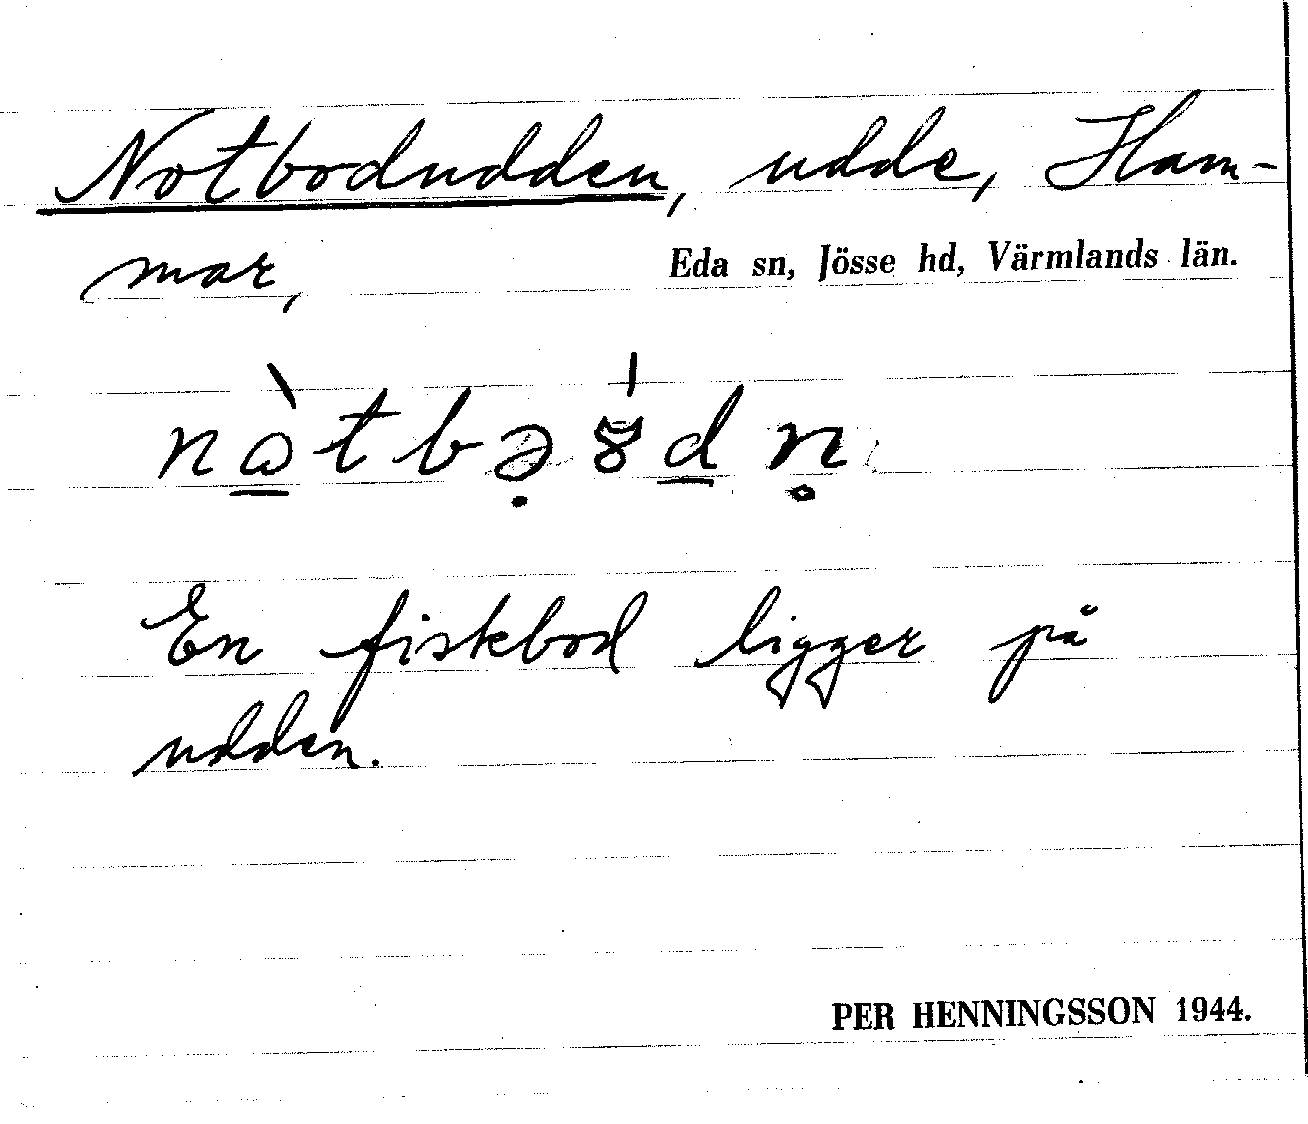 Notbodudden, udde, Ham-
mar,
Eda sn, Jösse hd, Värmlands län.
En fiskbod ligger på
udden.
PER HENNINGSSON 1944.